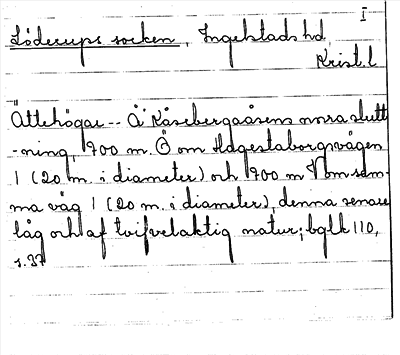 I
Löderups socken, Ingelstads hd,
Krist. l
Ättehögar -- Å Kåsebergaåsens norra slutt
-ning, 700 m. Ö om Hagestaborgsvägen
1 (20 m. i diameter) och 900 m V om sam-
ma väg 1 (20 m. i diameter), denna senare
låg och af tvifvelaktig natur; bglk 110,
s. 37